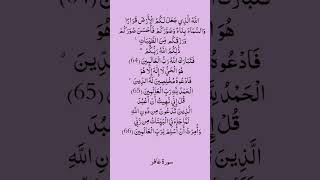 اللَّهُ الَّذِي جَعَلَ لَكُمُ الْأَرْضَ قَرَارًا
وَالسَّمَاءَ بِنَاءً وَصَوَّرَكُمْ فَأَحْسَنَ صُوَرَكُمْ
وَرَزَقَكُم مِّنَ الطَّيِّبَاتِ ۚ
ذَٰلِكُمُ اللَّهُ رَبُّكُمْ ۖ
فَتَبَارَكَ اللَّهُ رَبُّ الْعَالَمِينَ (64)
هُوَ الْحَيُّ لَا إِلَٰهَ إِلَّا هُوَ
فَادْعُوهُ مُخْلِصِينَ لَهُ الدِّينَ ۗ
الْحَمْدُ لِلَّهِ رَبِّ الْعَالَمِينَ (65)
قُلْ إِنِّي نُهِيتُ أَنْ أَعْبُدَ
الَّذِينَ تَدْعُونَ مِن دُونِ اللَّهِ
لَمَّا جَاءَنِيَ الْبَيِّنَاتُ مِن رَّبِّي
وَأُمِرْتُ أَنْ أُسْلِمَ لِرَبِّ الْعَالَمِينَ (66)
سورة غافر